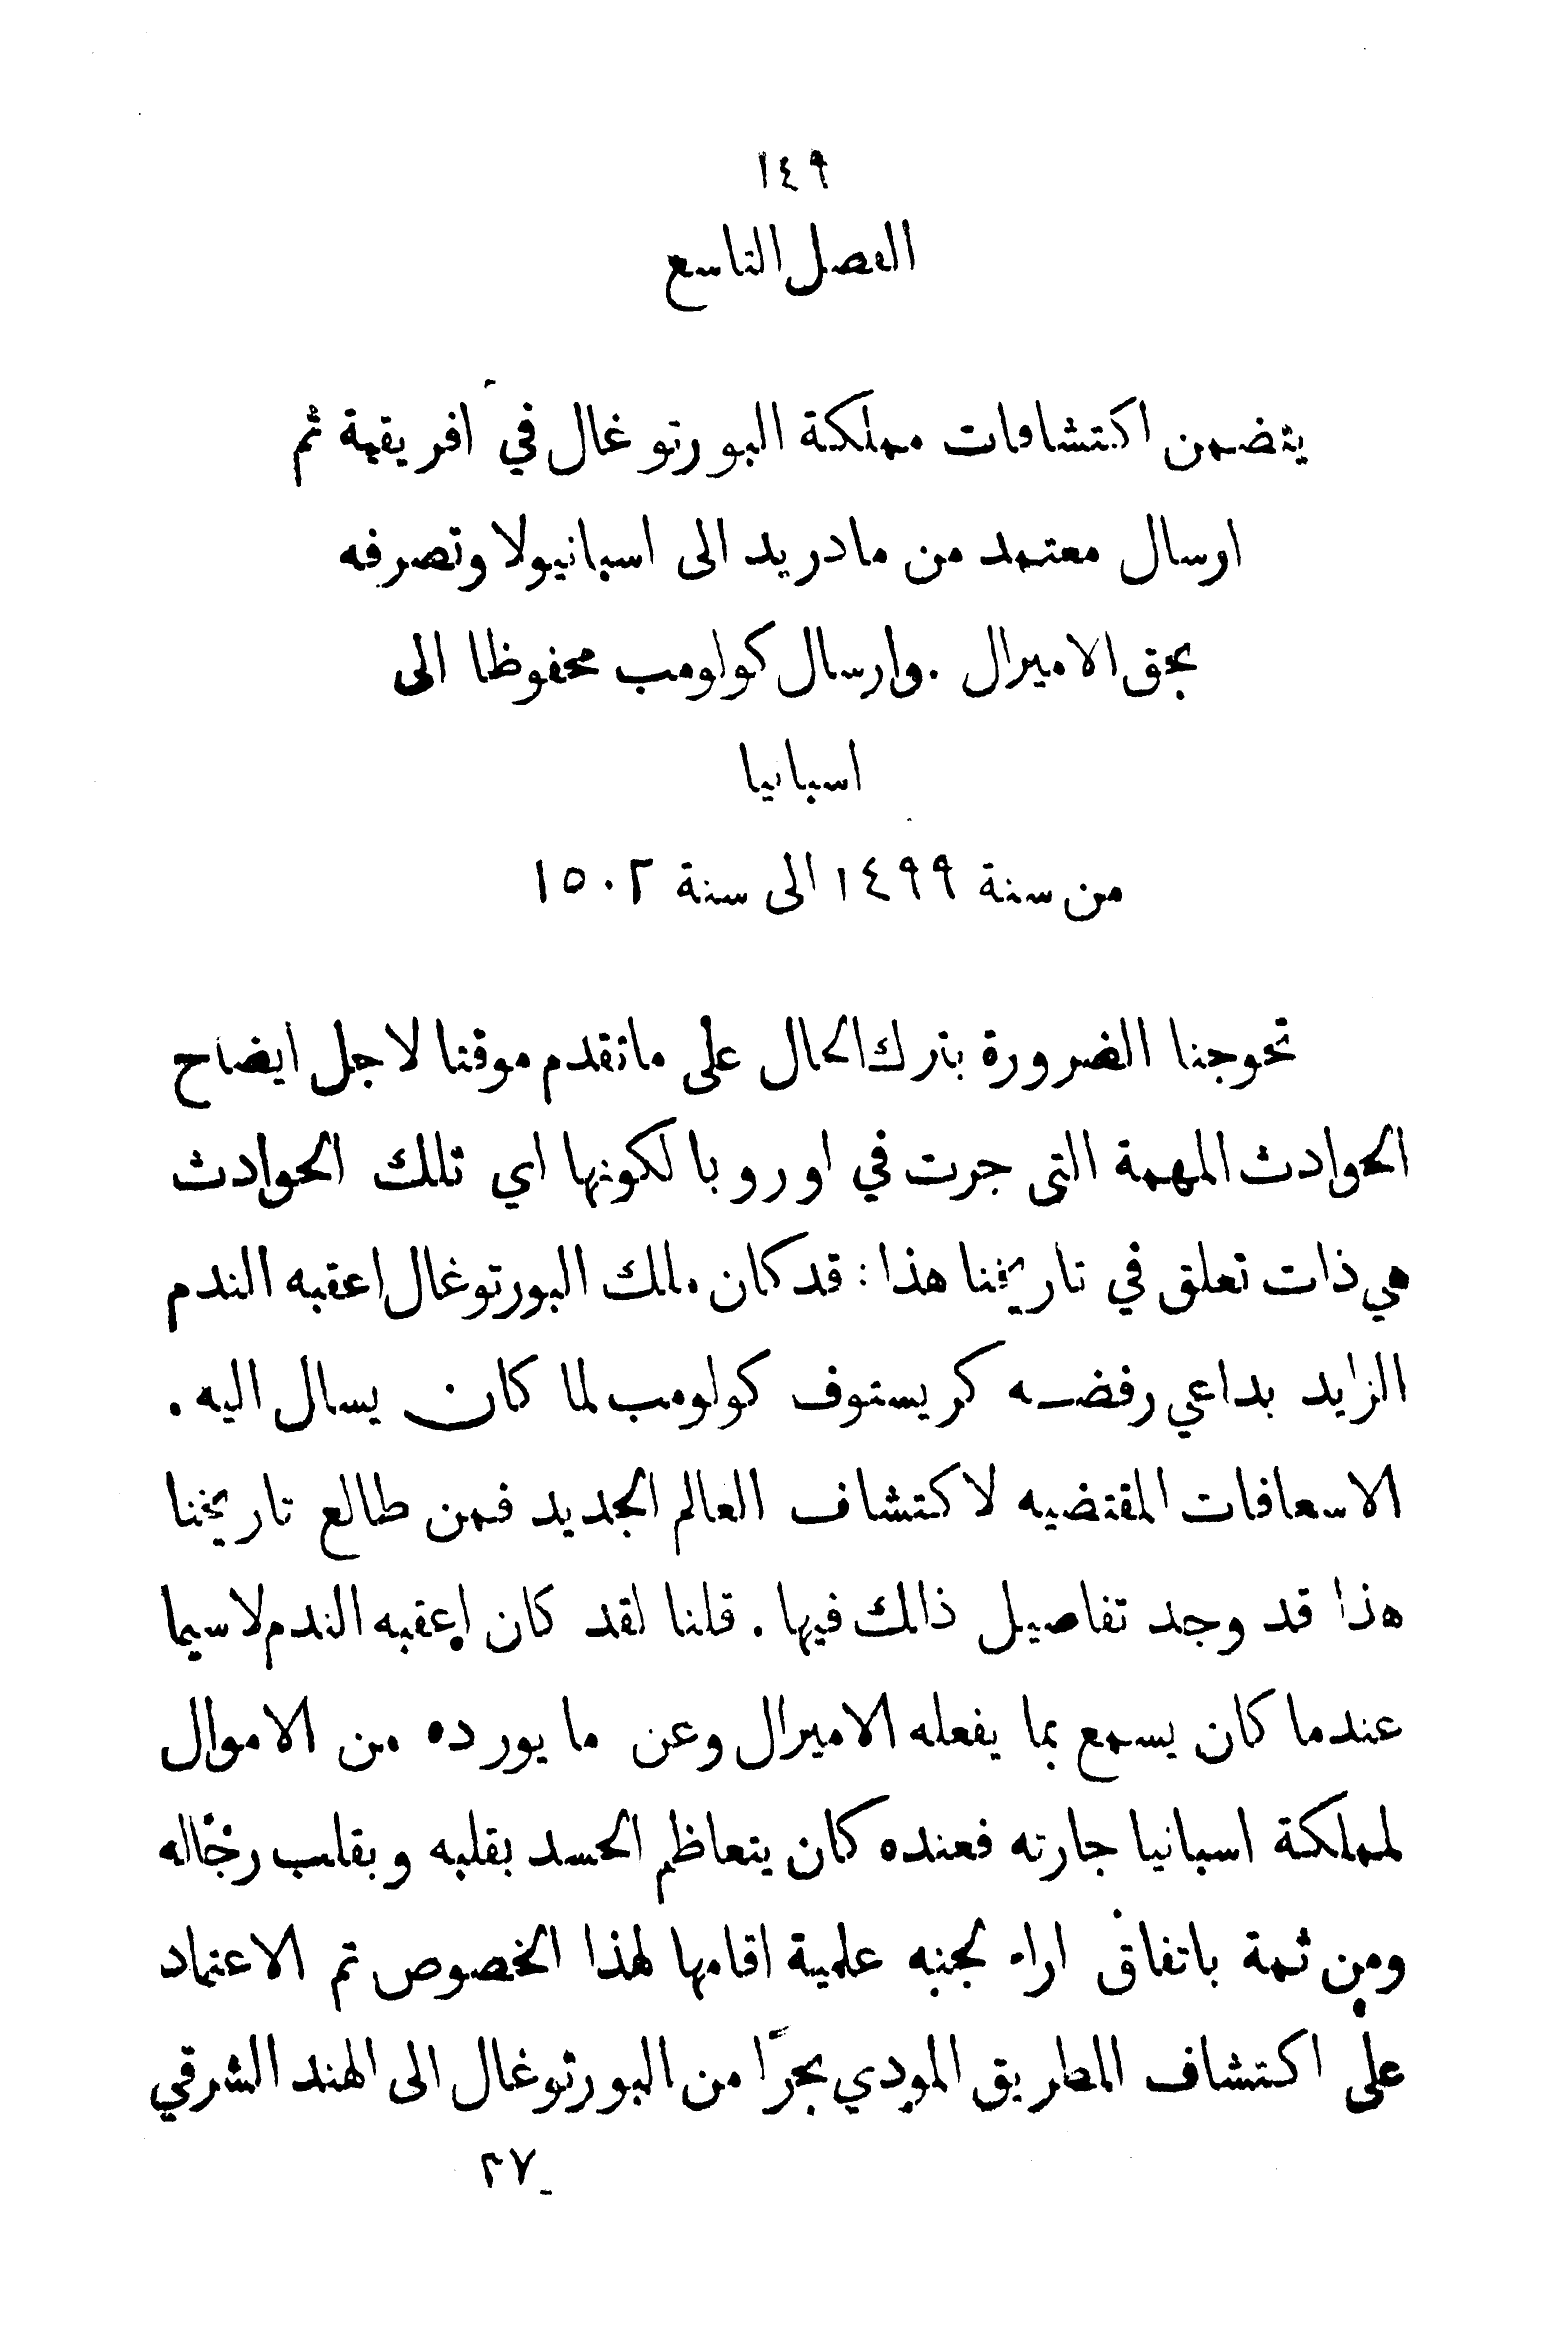 ١٤٩
الفصل التاسع
يتضمن اكتشافات مملكة البورتوغال في افريقية ثم
ارسال معتمد من مادريد الى اسبانيولا وتصرفه
بحق الاميرال . وارسال كولومب محفوظا الى
اسبانيا
من سنة ١٤٩٩ الى سنة ١٥٠٢
تحوجنا الضرورة بترك الحال على ماتقدم موقتا لاجل ايضاح
الحوادث المهمة التي جرت في اوروبا لكونها اي تلك الحوادث
هي ذات تعلق في تاريخنا هذا : قد كان ملك البورتوغال اعقبه الندم
الزايد بداعي رفضه كريستوف كولومب لما كان يسال اليه .
الاسعافات المقتضيه لاكتشاف العالم الجديد فمن طالع تاريخنا
هذا قد وجد تفاصيل ذالك فيها . قلنا لقد كان اعقبه الندم لاسيما
عندما كان يسمع بما يفعله الاميرال وعن ما يورده من الاموال
لمملكة اسبانيا جارته فعنده كان يتعاظم الحسد بقلبه وبقلب رجاله
ومن ثمة باتفاق اراء لجنه علمية اقامها لهذا الخصوص تم الاعتماد
على اكتشاف الطريق المودي بحرًا من البورتوغال الى الهند الشرقي
٢٧